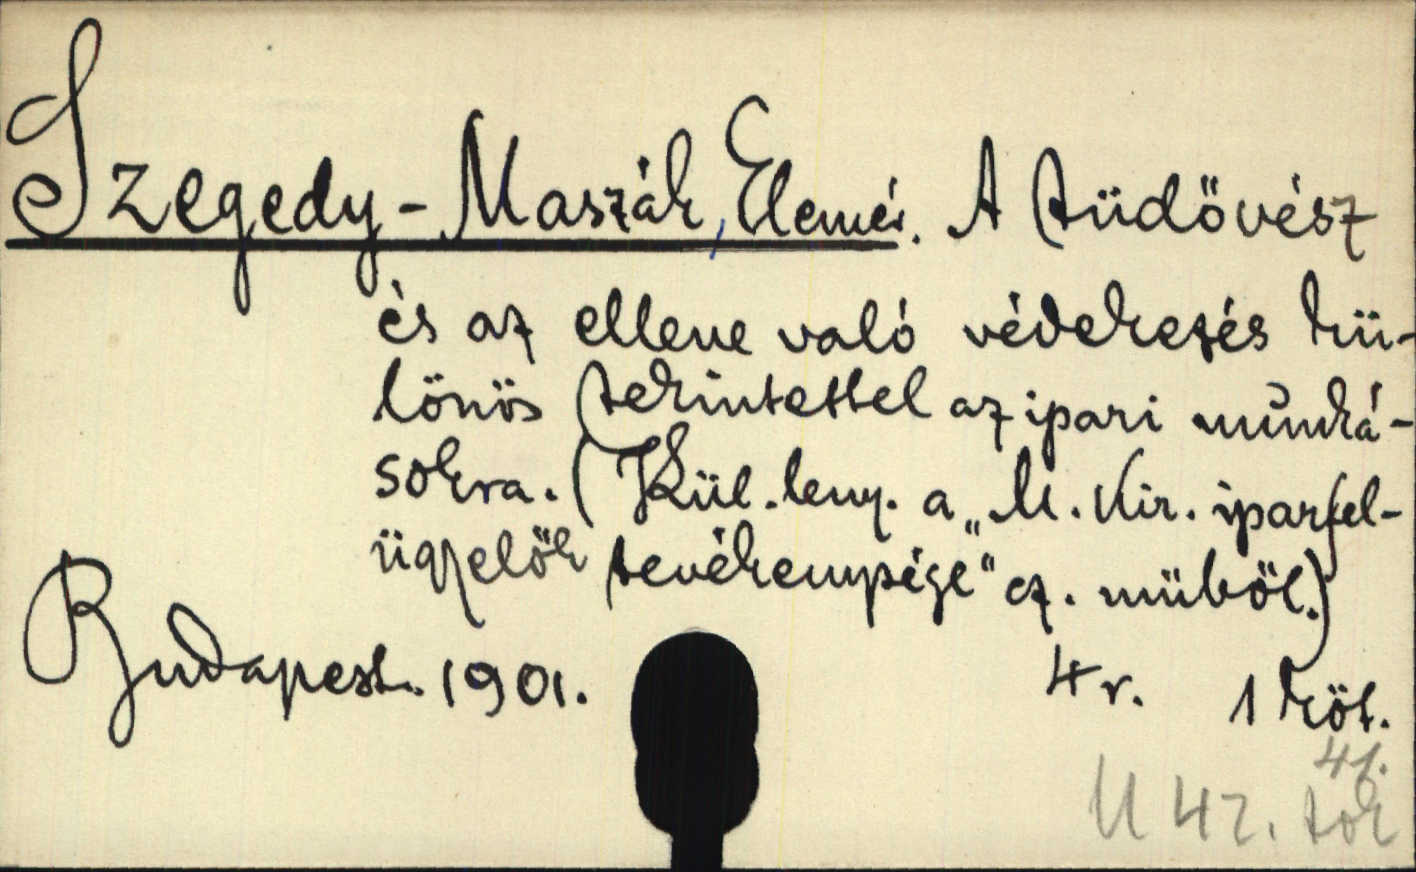 Szegedy-Maszák, Elemér. A tüdővész
és az ellene való védekezés kü-
lönös tekintettel az ipari munká-
sokra. (Kül. leny. a „M. Kir. iparfel-
ügyelők tevékenysége" cz. műből.)
Budapest. 1901. 4 r. 1 köt.
4f.
U 42. tok